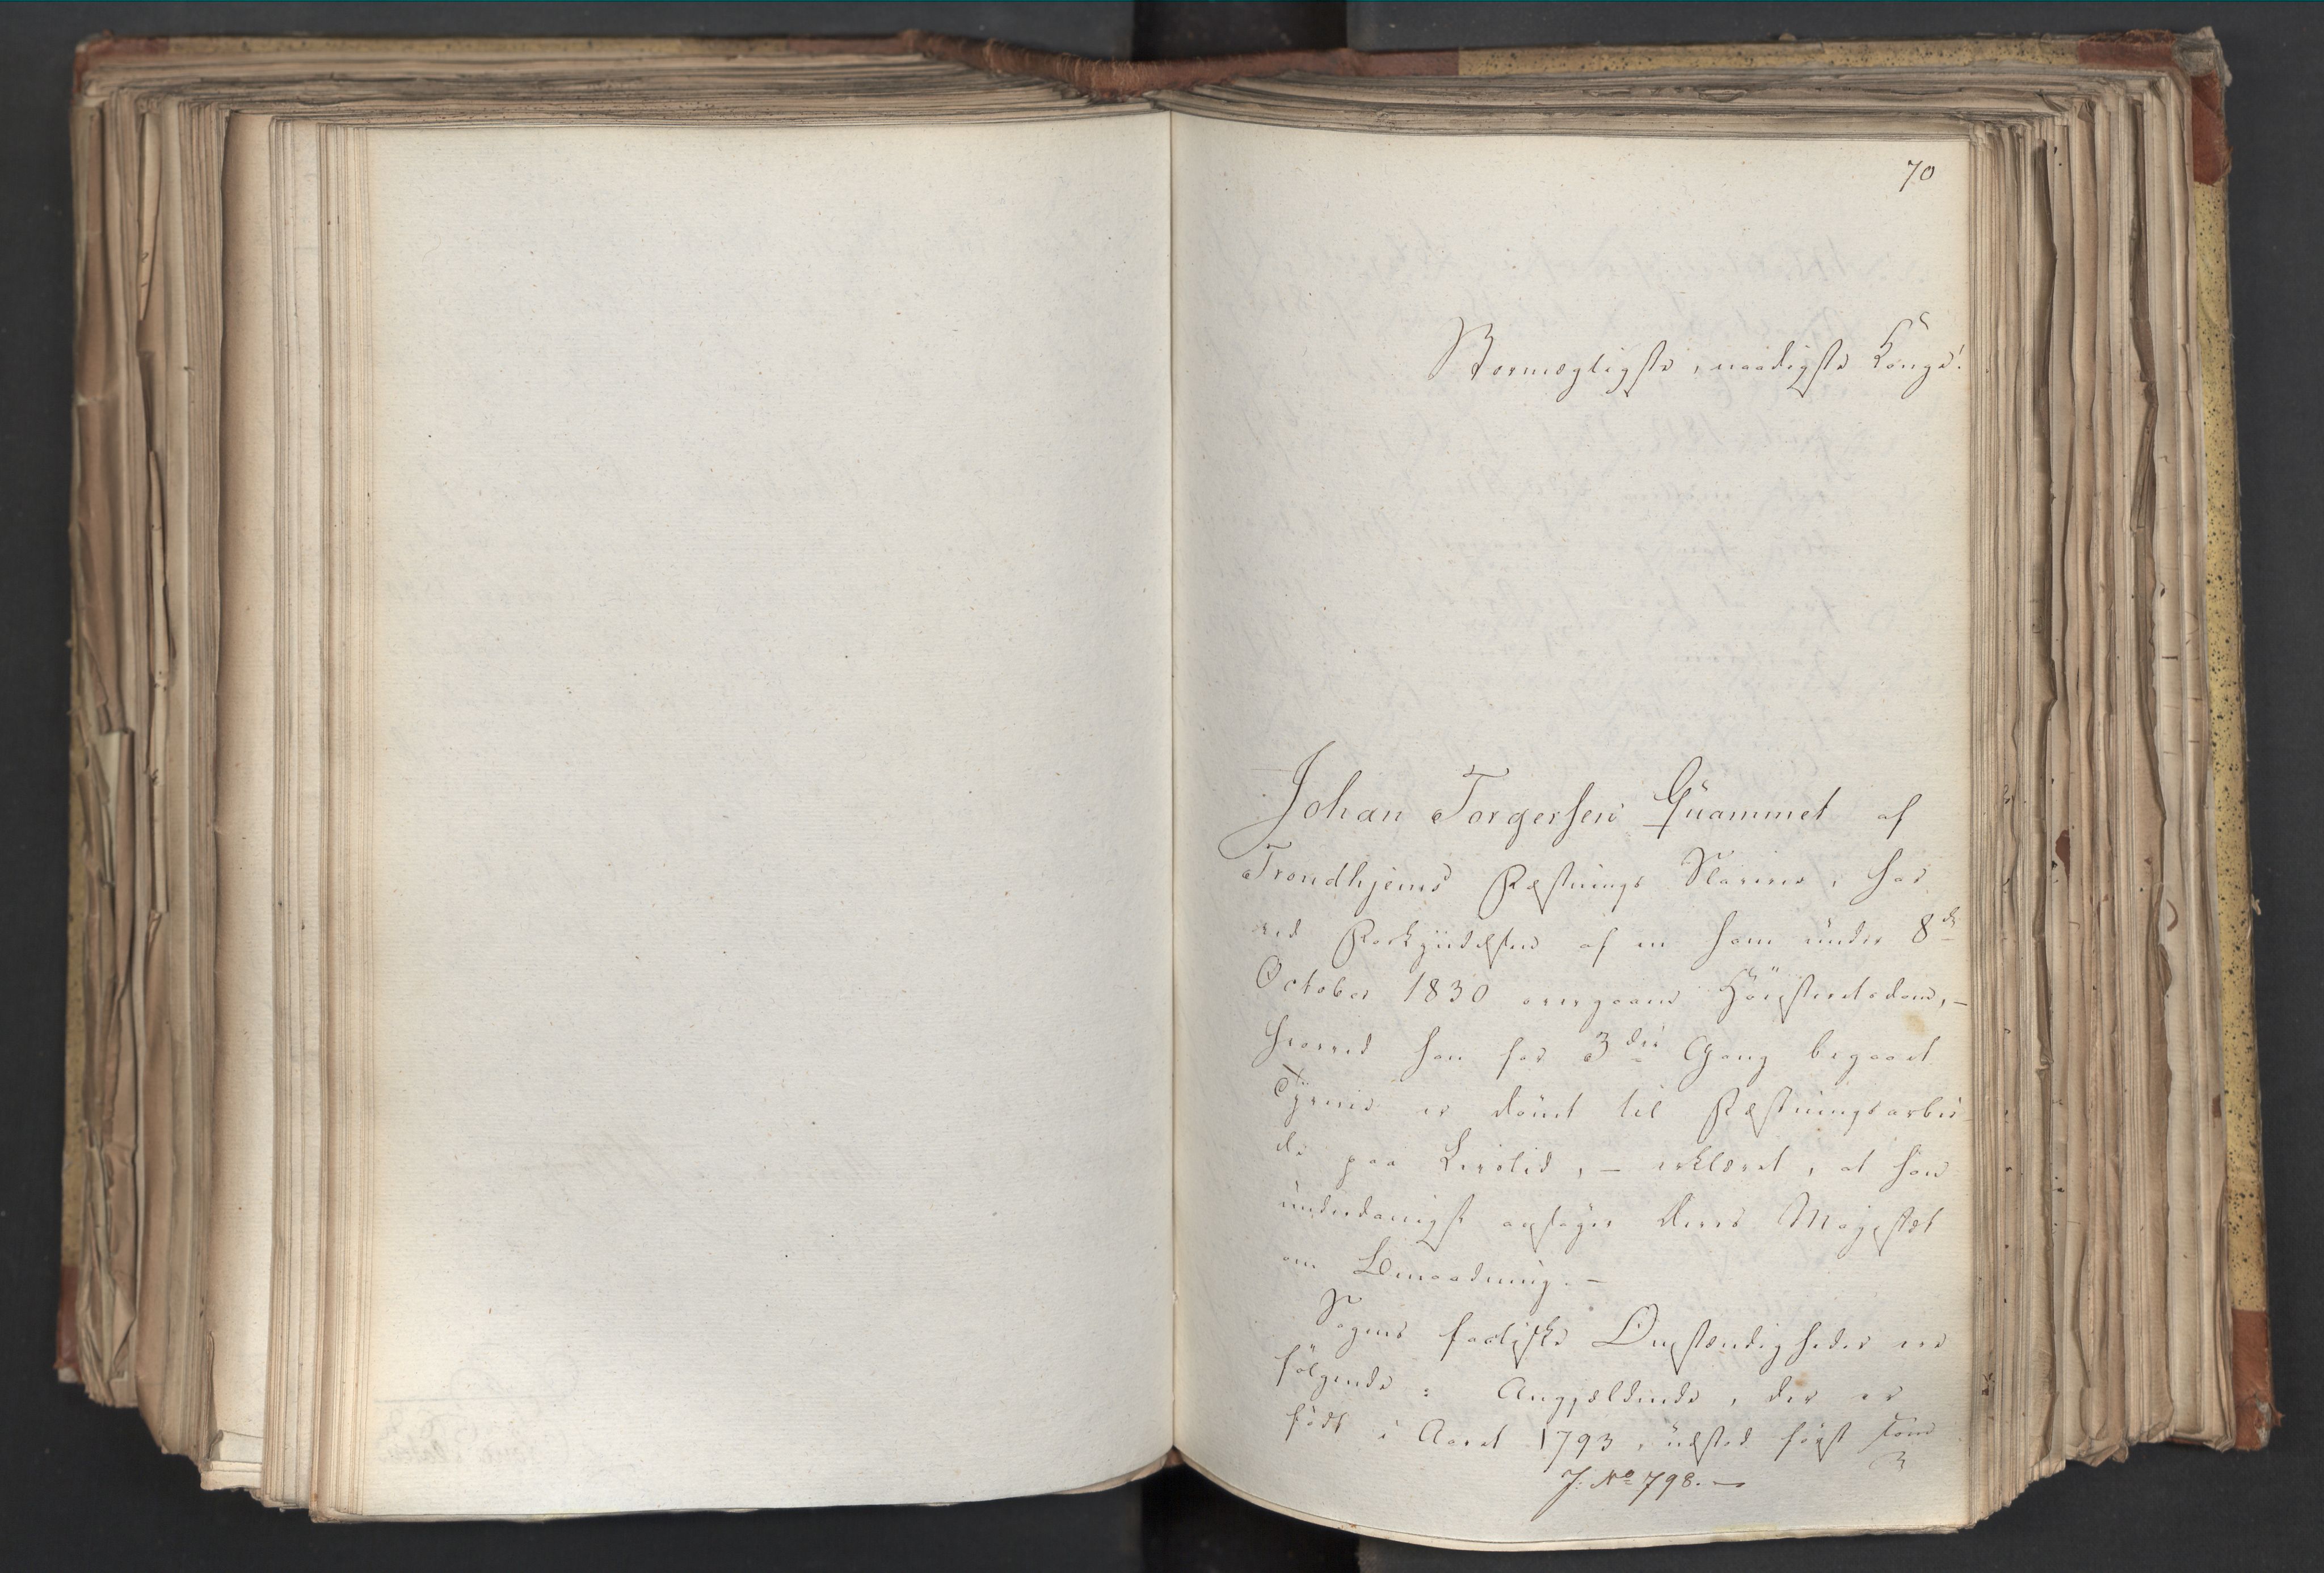 70
Stormægtigste, naadigste Konge!
Johan Torgersen Quammet af
Trondhjems Fæstnings Slaverie, har
ved Forkyndelsen af en ham under 8de
October 1830 overgaaen Høiesteretsdom, –
hvorved han for 3die Gang begaaet
Tyverie er dömt til Fæstningsarbei-
de paa Livstid, – erklæret, at han
underdanigst ansøger Deres Majestæt
om Benaadning. –
Sagens factiske Omstændigheder ere
følgende: Angjeldende, der er
født i Aaret 1793, udstod först som
J. No 798. –